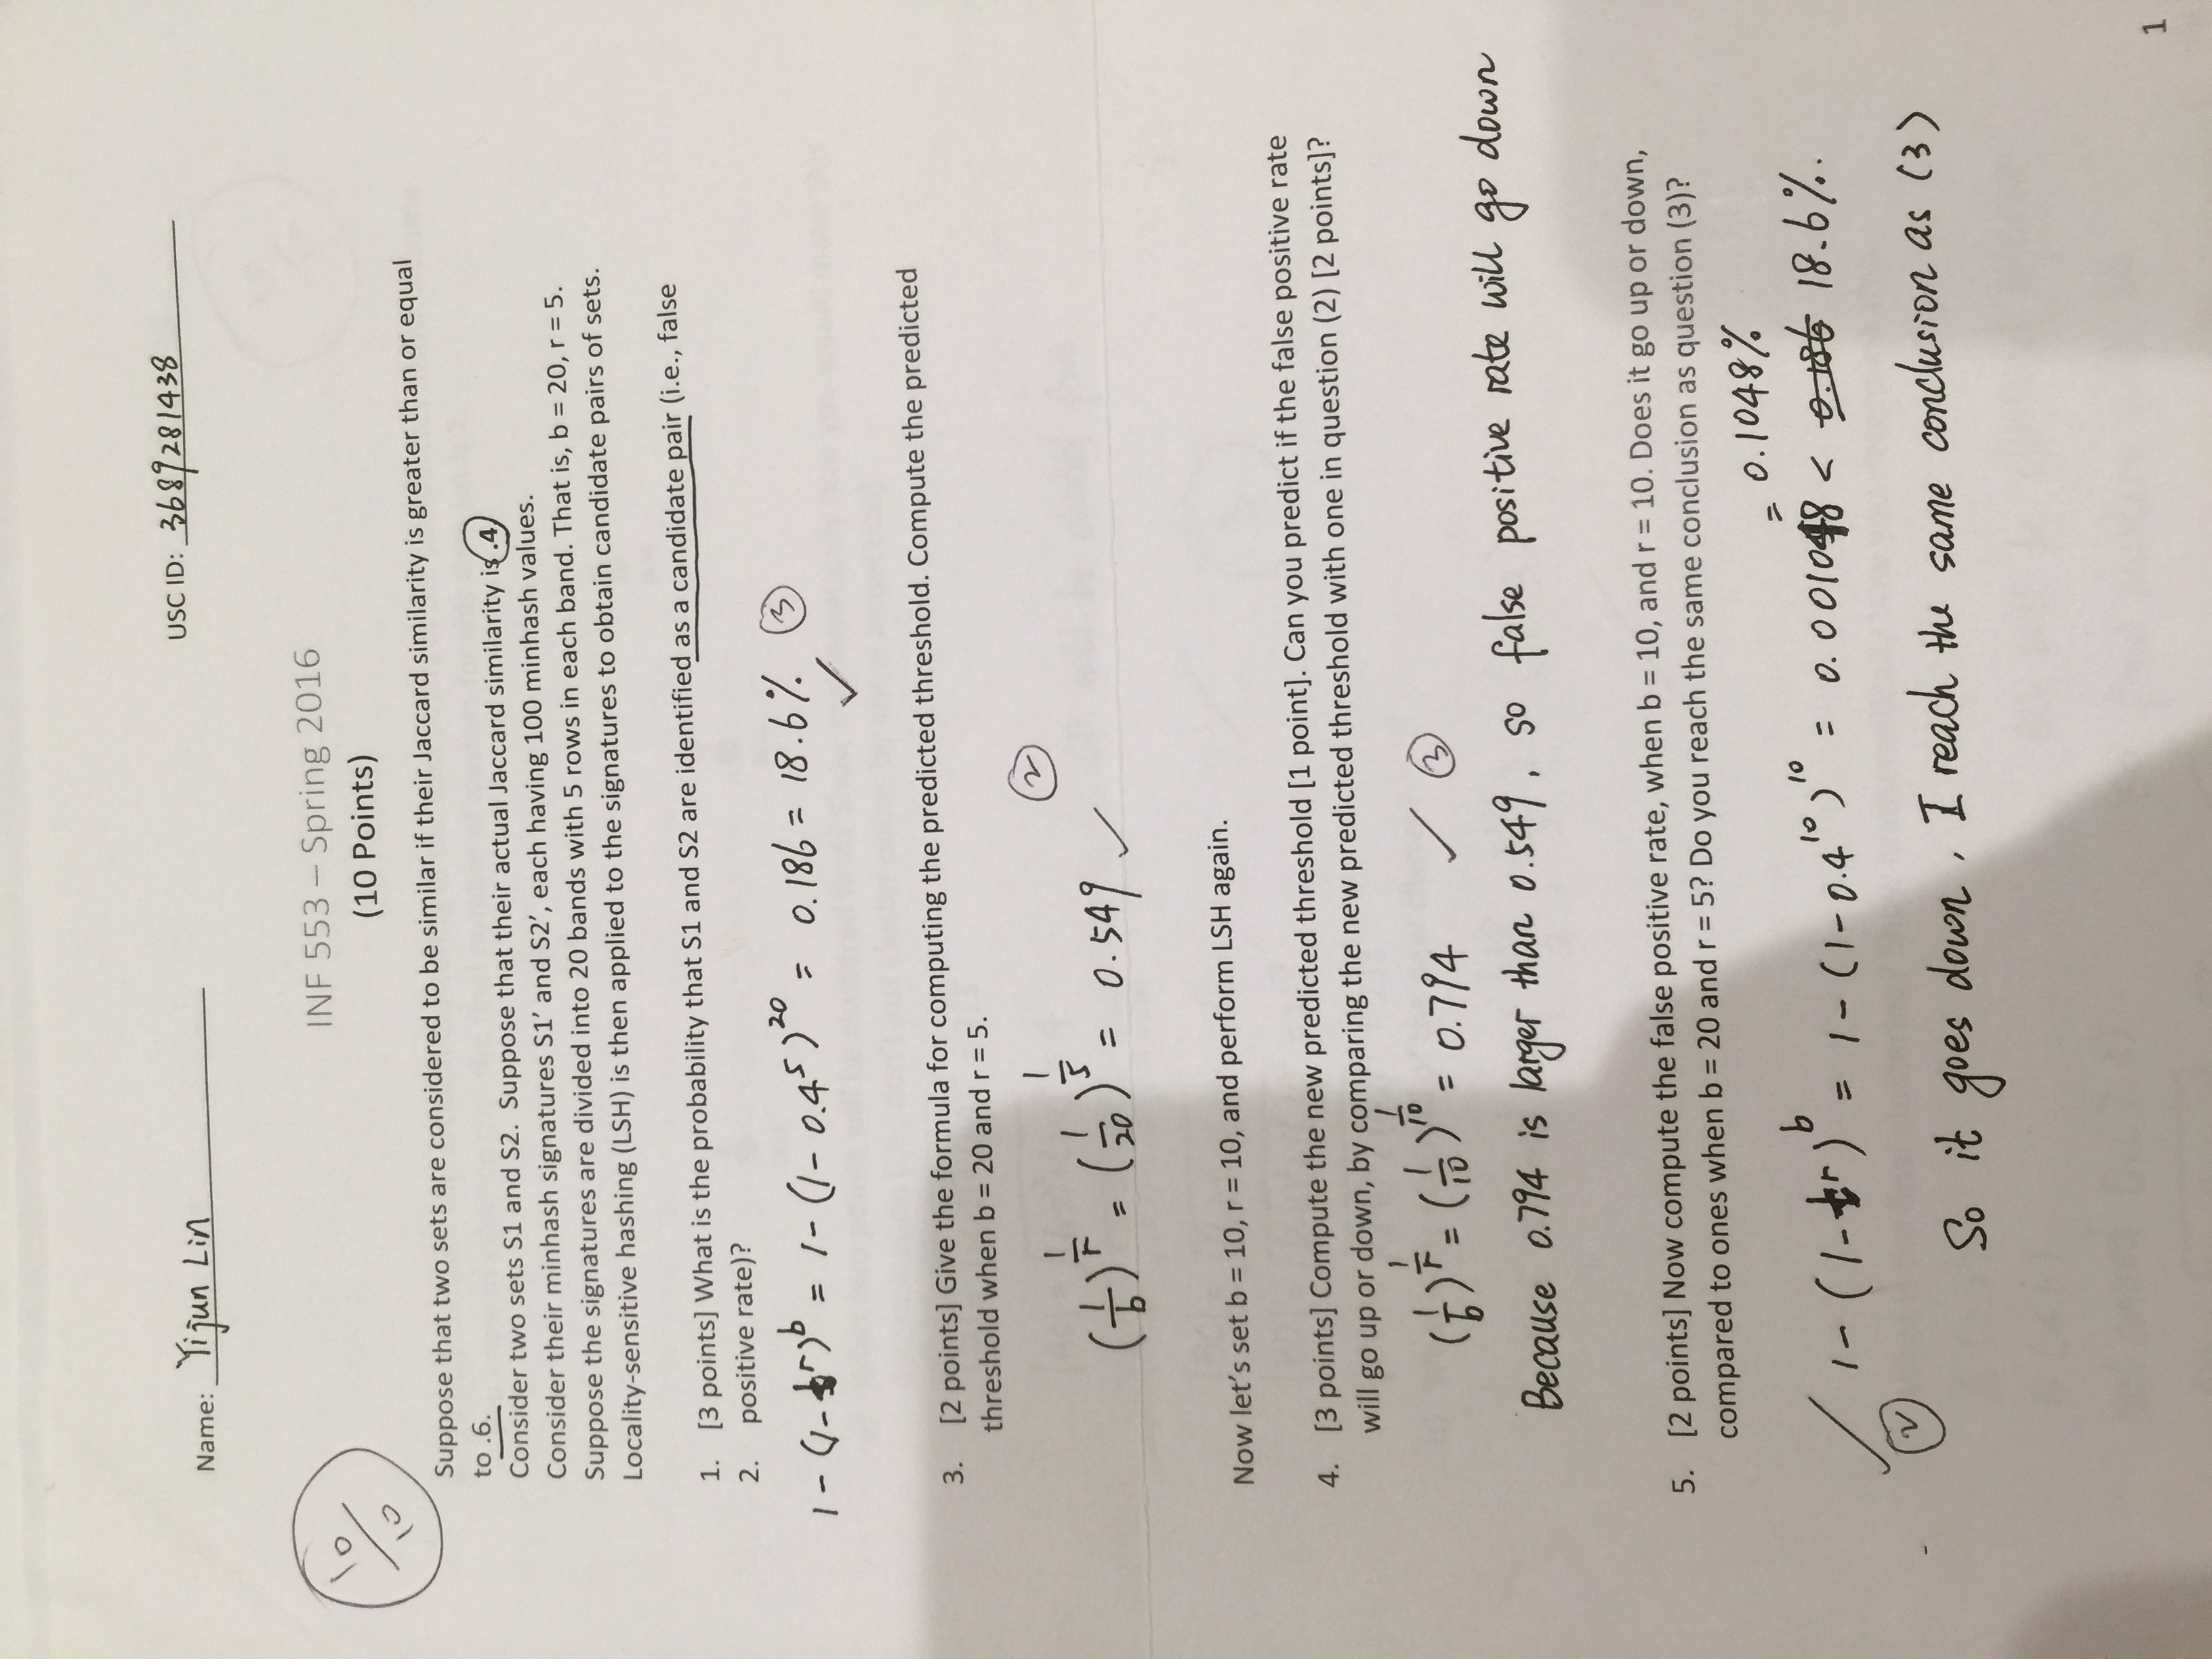 Name: Yijun Lin
USC ID: 3689281438
10/10
INF 553 – Spring 2016
(10 Points)
Suppose that two sets are considered to be similar if their Jaccard similarity is greater than or equal
to .6.
Consider two sets S1 and S2. Suppose that their actual Jaccard similarity is .4
Consider their minhash signatures S1’ and S2’, each having 100 minhash values.
Suppose the signatures are divided into 20 bands with 5 rows in each band. That is, b = 20, r = 5.
Locality-sensitive hashing (LSH) is then applied to the signatures to obtain candidate pairs of sets.
1. [3 points] What is the probability that S1 and S2 are identified as a candidate pair (i.e., false
2. positive rate)?
1-(1-t^r)^b = 1-(1-0.4^5)^20 = 0.186 = 18.6% ③ ✓
3. [2 points] Give the formula for computing the predicted threshold. Compute the predicted
threshold when b = 20 and r = 5.
②
(1/b)^(1/r) = (1/20)^(1/5) = 0.549 ✓
Now let’s set b = 10, r = 10, and perform LSH again.
4. [3 points] Compute the new predicted threshold [1 point]. Can you predict if the false positive rate
will go up or down, by comparing the new predicted threshold with one in question (2) [2 points]?
(1/b)^(1/r) = (1/10)^(1/10) = 0.794 ✓ ③
Because 0.794 is larger than 0.549, so false positive rate will go down
5. [2 points] Now compute the false positive rate, when b = 10, and r = 10. Does it go up or down,
compared to ones when b = 20 and r = 5? Do you reach the same conclusion as question (3)?
= 0.1048%
✓ 1-(1-t^r)^b = 1-(1-0.4^10)^10 = 0.001048 < 0.186 18.6%.
②
So it goes down, I reach the same conclusion as (3)
1